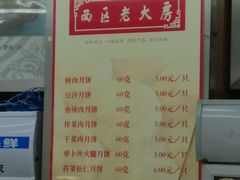 西区老大房
鲜肉月饼 60克 5.00元/只
豆沙月饼 60克 5.00元/只
香辣肉月饼 60克 5.00元/只
榨菜肉月饼 60克 5.00元/只
干菜肉月饼 60克 5.00元/只
萝卜丝火腿月饼 60克 6.00元/只
苔菜松仁月饼 60克 5.00元/只
鲜